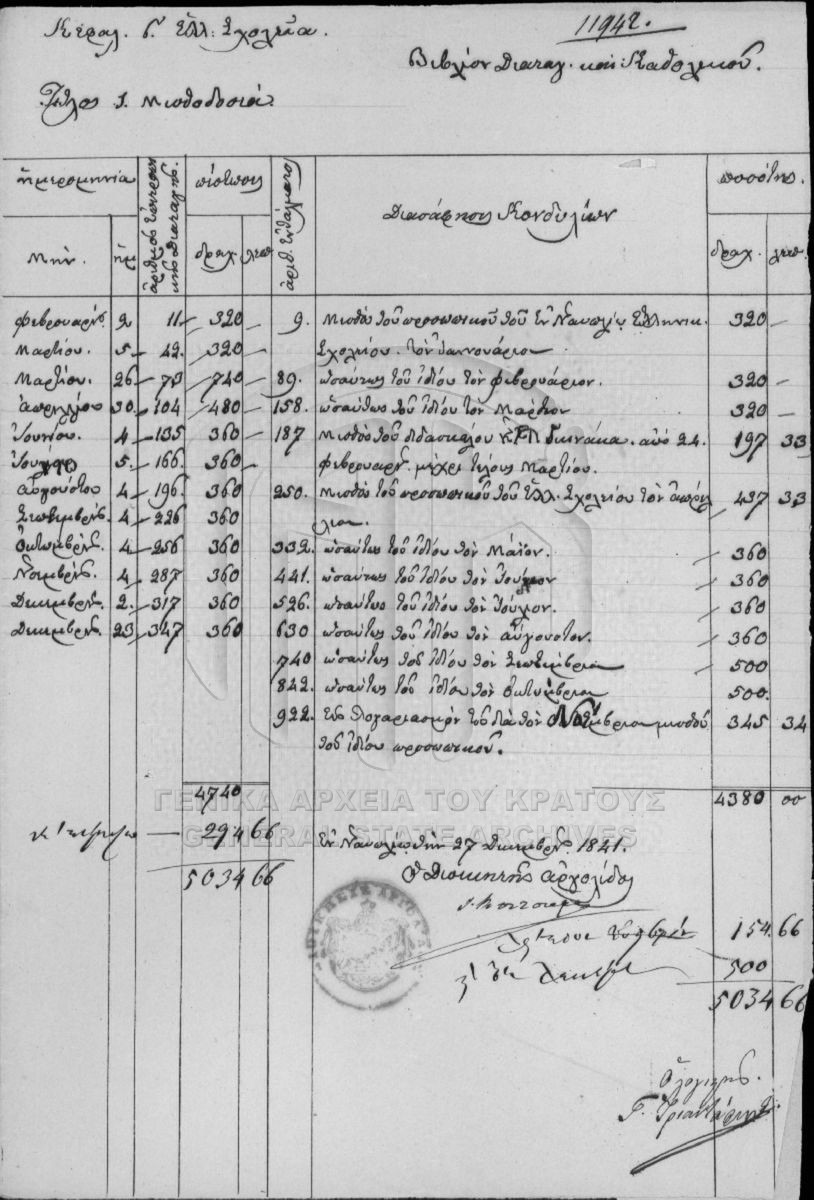 11942.
Κεφαλ. Γ. Ἑλλ: Σχολεῖα.
Βιβλίον Διαταγ. καὶ Καθολικοῦ.
Τίτλος 1. Μισθοδοσία
ἡμερομηνία ἀριθμὸς τῆς Διαταγῆς. πίστωσις ἀριθ. Ἐντάλματος Διασάφησις Κονδυλίων ποσότης.
Μήν. ἡμ δραχ. λεπ δραχ. λεπ.
Φεβρουαρ. 2 11 320 — 9. Μισθοὶ τοῦ προσωπικοῦ τοῦ ἐν Ναυπλίῳ Ἑλληνικ. 320 —
Μαρτίου. 5 42. 320 Σχολείου. τὸν Ἰαννουάριον
Μαρτίου. 26 73 740 — 89. ὡσαύτως τοῦ ἰδίου τὸν φεβρουάριον. 320 —
Ἀπριλίου 30. 104 480 — 158. ὡσαύτως τοῦ ἰδίου τὸν Μάρτιον 320 —
Ἰουνίου. 4 135 360 187 Μισθὸς τοῦ διδασκάλου ἀπὸ 24. 197 33
Ἰουλίου 5. 166. 360 φεβρουαρ. μέχρι τέλους Μαρτίου.
Αὐγούστου 4 196. 360 250. Μισθοὶ τοῦ προσωπικοῦ τοῦ Ἑλλ. Σχολείου τὸν Ἀπρί 437 33
Σεπτεμβρ. 4 226 360 λιον.
Ὀκτωμβρ. 4 256 360 332. ὡσαύτως τοῦ ἰδίου τὸν Μάϊον. 360
Νοεμβρ. 4 287 360 441. ὡσαύτως τοῦ ἰδίου τὸν Ἰούνιον 360
Δεκεμβρ. 2. 317 360 526. ὡσαύτως τοῦ ἰδίου τὸν Ἰούλιον. 360
Δεκεμβρ. 23 347 360 630 ὡσαύτως τοῦ ἰδίου τὸν αὔγουστον. 360
740 ὡσαύτως τοῦ ἰδίου τὸν Σεπτέμβριον 500
842. ὡσαύτως τοῦ ἰδίου τὸν ὀκτώμβριον 500.
922. εἰς λογαριασμὸν τοῦ διὰ τὸν Νοέμβριον μισθοῦ 345 34
τοῦ ἰδίου προσωπικοῦ.
4740 4380 00
ΓΕΝΙΚΑ ΑΡΧΕΙΑ ΤΟΥ ΚΡΑΤΟΥΣ
GENERAL STATE ARCHIVES
294 66
Ἐν Ναυπλίῳ τὴν 27 Δεκεμβρ. 1841.
5034 66
Ὁ Διοικητὴς Ἀργολίδος
154. 66
500
5034 66
Γ. Τριαντ